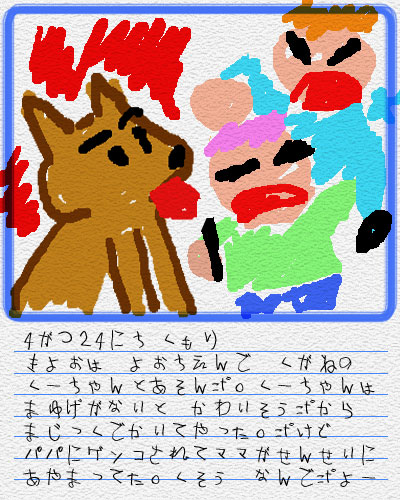 4がつ24にち くもり
きょおは よおちえんで くがねの
くーちゃんとあそんだ。くーちゃんは
まゆげがないと かわいそうだから
まじっくでかいてやった。だけど
パパにゲンコされてママがせんせいに
あやまってた。くそう なんでだよー